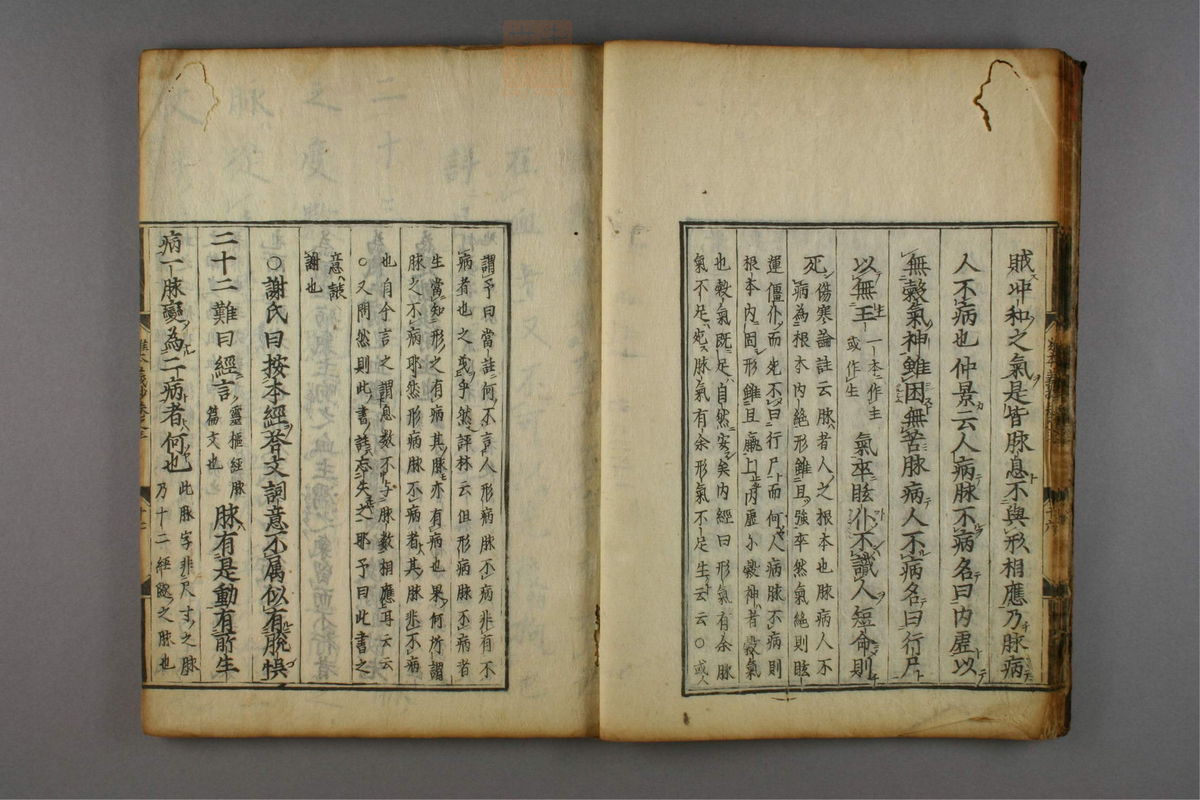 賊冲和之氣是皆脉息不與形相應乃脉病
人不病也仲景云人病脉不病名曰内虚以
無穀氣神雖困無苦脉病人不病名曰行尸
以無王 一本作生 或作主 氣卒眩仆不識人短命則
死 傷寒論註云脉者人之根本也脉病人不
病為根本内絶形雖且強卒然氣絶則眩
運僵仆而死不曰行尸而何人病脉不病則
根本内固形雖且羸止内虚尓穀神者穀氣
也穀氣既足自然安矣内經曰形氣有余脉
氣不足死脉氣有余形氣不足生云云○或人
謂予曰當註何不言人形病脉不病非有不
病者也之或乎然評林云但形病脉不病者
生當知形之有病其脉亦有病也果何所謂
脉之不病耶然形病脉不病者其脉非不病
也自今言之謂息數不中于脉數相應耳云云
○又問然則此書註亦失之耶予曰此書之
意設
謝也
○謝氏曰按本經荅文詞意不属似有脱悞
二十二難曰經言 靈樞經脉 篇文也 脉有是動有所生
病一脉變為二病者何也 此脉字非尺寸之脉 乃十二經隧之脉也